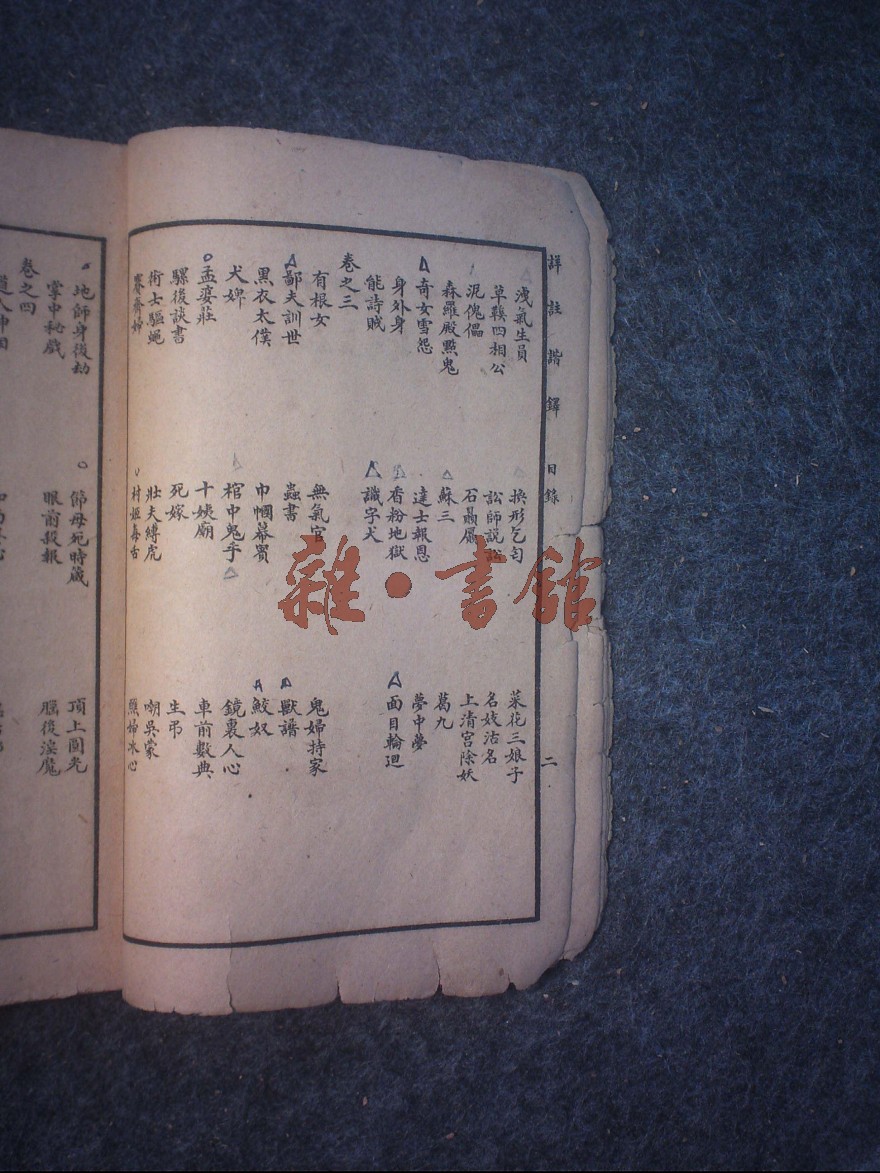 詳註諧鐸 目錄 二
洩氣生員 換形乞匄 菜花三娘子
草鞋四相公 訟師說訟 名妓沽名
泥傀儡 石贔屭 上清宮除妖
森羅殿點鬼 蘇三 葛九
奇女雪怨 達士報恩 夢中夢
身外身 香粉地獄 面目輪迴
能詩賊 識字犬
卷之三
有根女 無氣官 鬼婦持家
鄙夫訓世 蟲書 獸譜
黑衣太僕 巾幗幕賓 鮫奴
犬婢 棺中鬼手 鏡裏人心
孟婆莊 十姨廟 車前數典
騾後談書 死嫁 生弔
術士驅蠅 壯夫縛虎 嘲吳蒙
村姬毒舌 婦冰心
地師身後劫 節母死時箴 頂上圓光
掌中秘戲 眼前殺報 腦後淫魔
卷之四
雜·書館